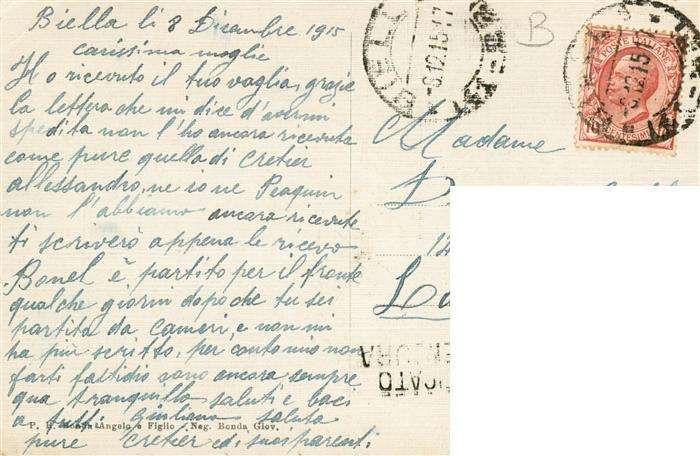 Biella li 8 Dicembre 1915
carissima moglie
Ho ricevuto il tuo vaglia, grazie
la lettera che mi dice d'avermi
spedita non l'ho ancora ricevuta
come pure quella di Cretier
Allessandro, ne io ne Peaquin
non l'abbiamo ancora ricevute
ti scriverò appena le ricevo
Bonel è partito per il fronte
qualche giorni dopo che tu sei
partita da Cameri, e non mi
ha più scritto, per conto mio non
farti fastidio sono ancora sempre
qua tranquillo saluti e baci
a tutti Giuliano saluta
pure Cretier ed i suoi parenti
P. B. Angelo e Figlio - Neg. Bonda Giov.
B
8.12.15.17
POSTE ITALIANE
10
Madame